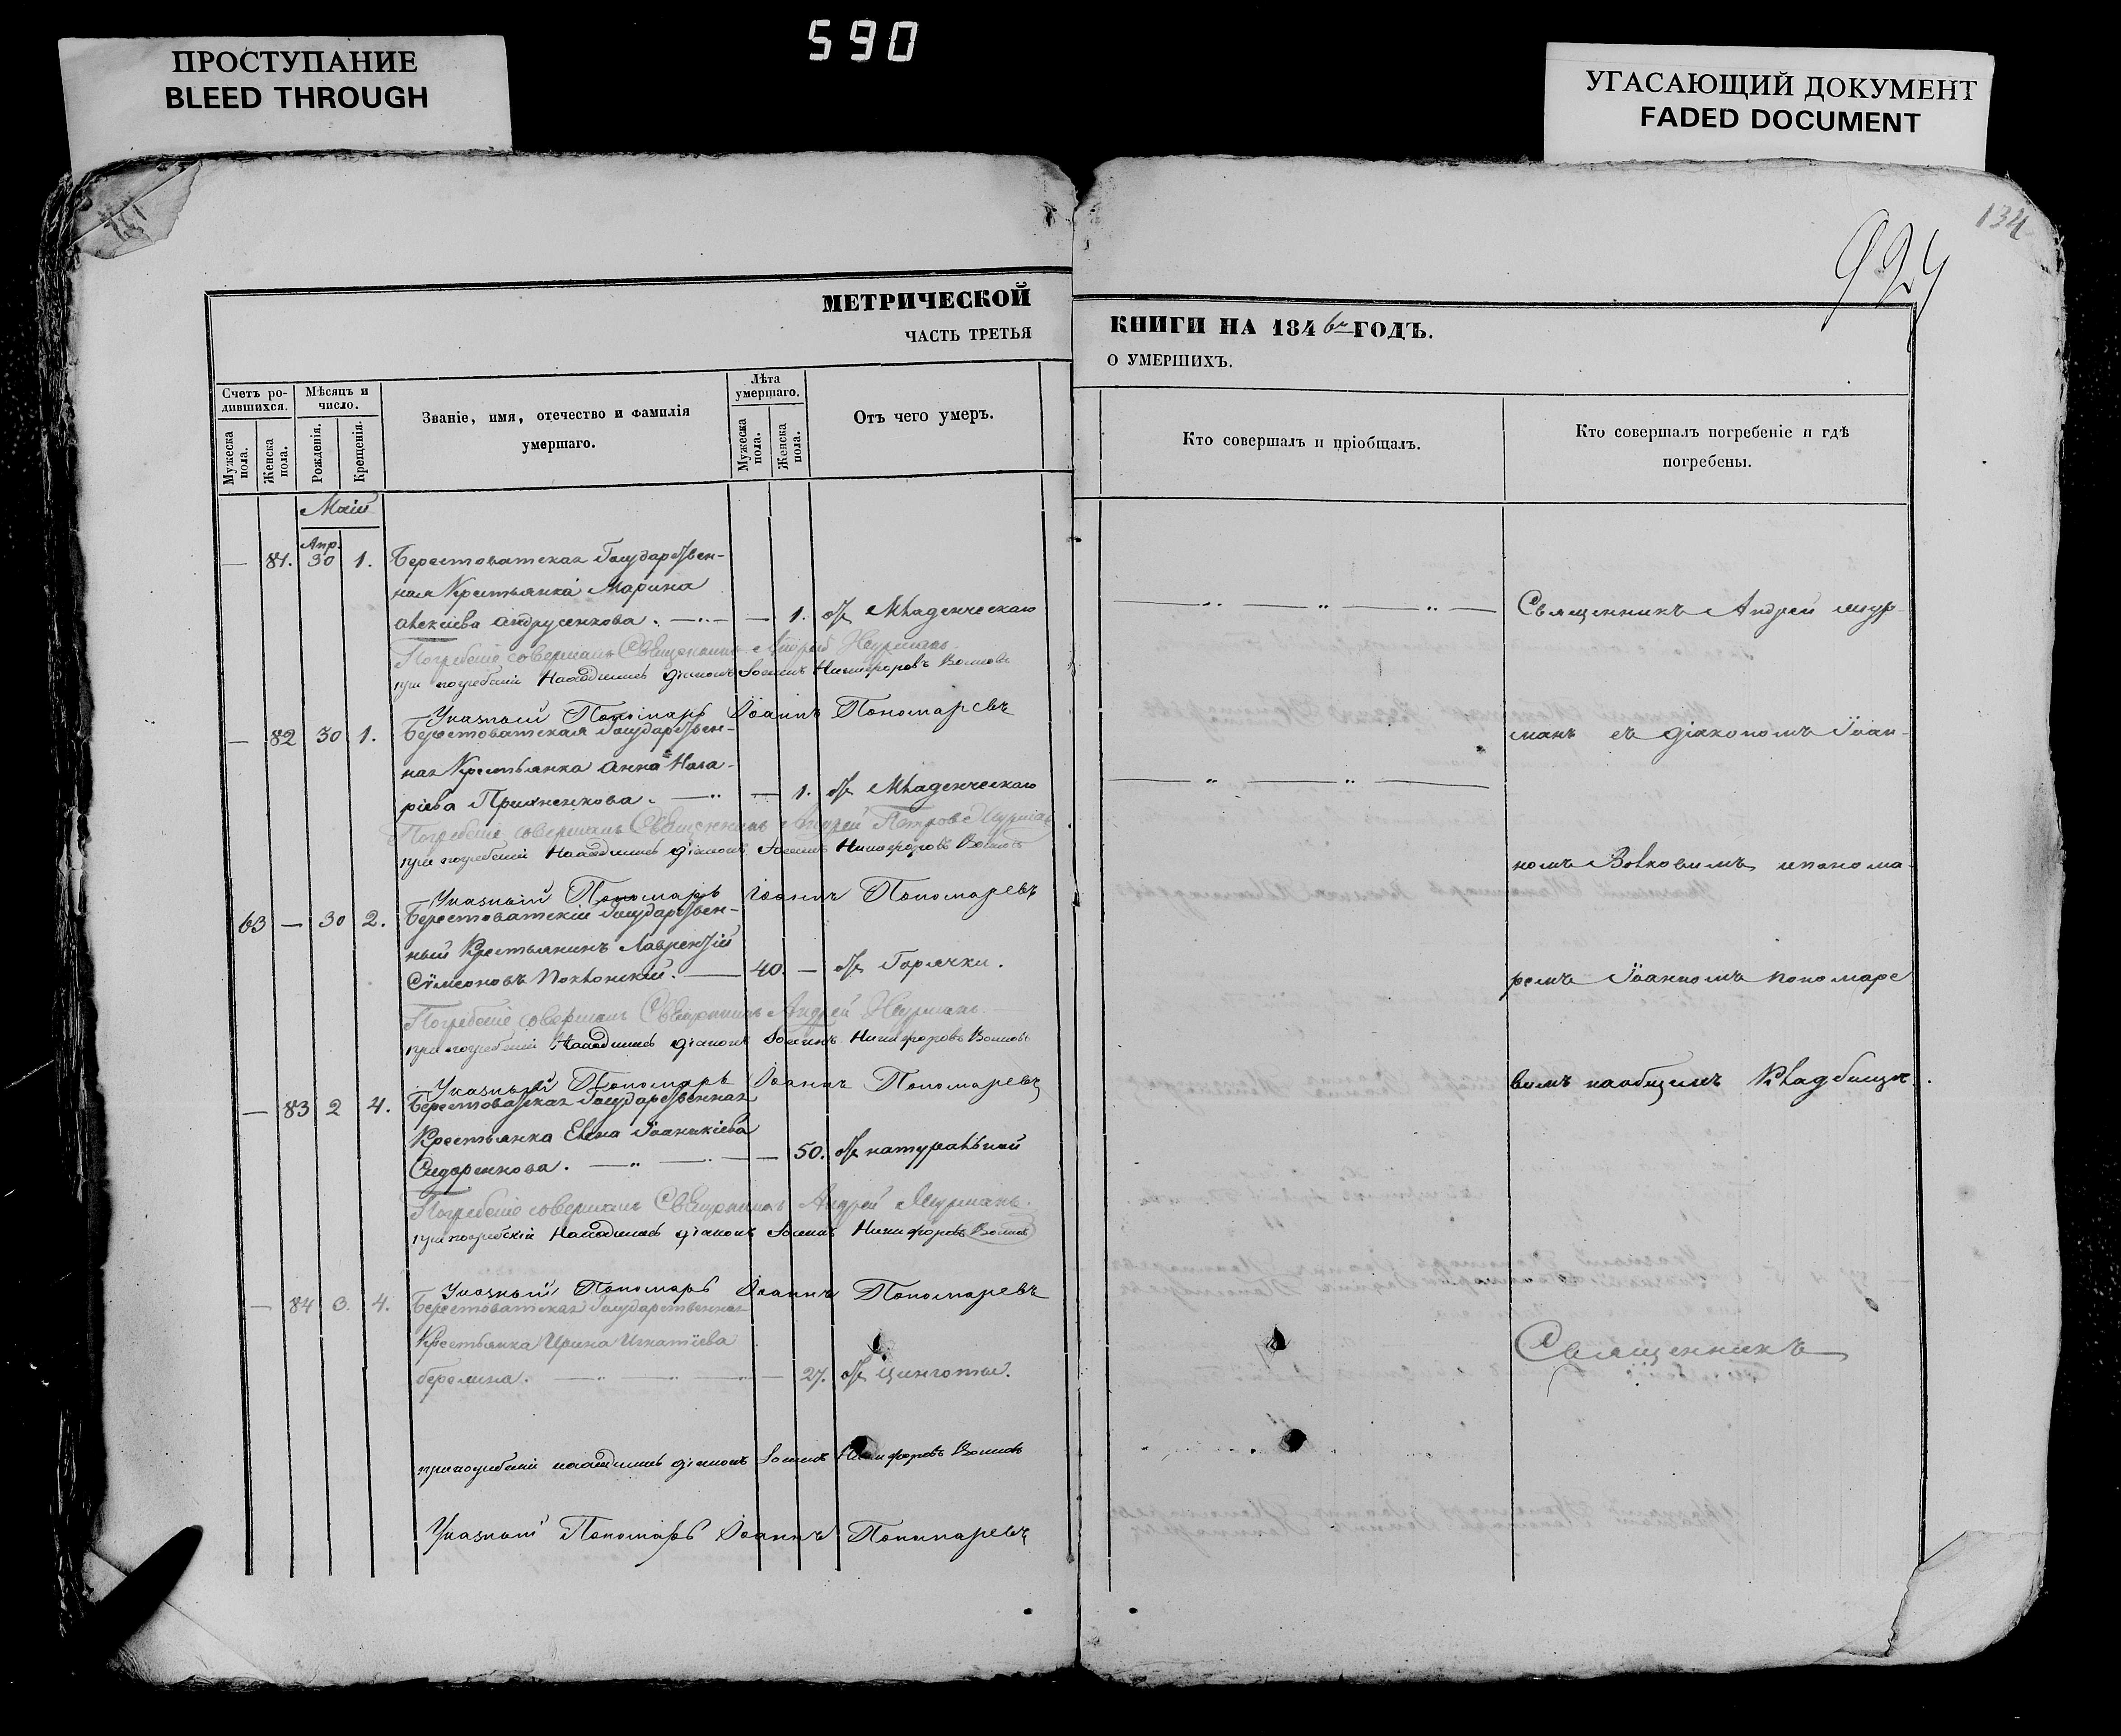 590
ПРОСТУПАНИЕ
BLEED THROUGH
УГАСАЮЩИЙ ДОКУМЕНТ
FADED DOCUMENT
134
924
МЕТРИЧЕСКОЙ
ЧАСТЬ ТРЕТЬЯ
КНИГИ НА 1846 ГОДЪ.
О УМЕРШИХЪ.
Счетъ ро-
дившихся.
Мужеска пола.
Женска пола.
Мѣсяцъ и
число.
Рожденія.
Крещенія.
Званіе, имя, отечество и фамилія
умершаго.
Лѣта
умершаго.
Мужеска пола.
Женска пола.
Отъ чего умеръ.
Кто совершалъ и пріобщалъ.
Кто совершалъ погребеніе и гдѣ
погребены.
Маій
Апр.
— 81. 30 1. Берестоватская Государствен-
ная Крестьянка Марина
Алексіева Андрусенкова. — — 1. отъ Младенческаго
Погребеніе совершалъ Священникъ Андрей Мурманъ
при погребеніи находились Діаконъ Іоаннъ Никифоровъ Волковъ
Указный Пономарь Іоаннъ Пономаревъ
— 82 30 1. Берестоватская Государствен-
ная Крестьянка Анна Наза-
ріева — — 1. отъ Младенческаго
Погребеніе совершалъ Священникъ Андрей Петровъ Мурманъ
при погребеніи находились Діаконъ Іоаннъ Никифоровъ Волковъ
Указный Пономарь Іоаннъ Пономаревъ
63 — 30 2. Берестоватскій Государствен-
ный Крестьянинъ Лаврентій
Сѵмеоновъ Поклонскій. — 40. — отъ Горячки.
Погребеніе совершалъ Священникъ Андрей Мурманъ
при погребеніи находились Діаконъ Іоаннъ Никифоровъ Волковъ
Указный Пономарь Іоаннъ Пономаревъ
— 83 2 4. Берестоватская Государственная
Крестьянка Елена Іоанникіева
Сидоренкова. — — 50. отъ натуральной
Погребеніе совершалъ Священникъ Андрей Мурманъ
при погребеніи находились Діаконъ Іоаннъ Никифоровъ Волковъ
Указный Пономарь Іоаннъ Пономаревъ
— 84 3. 4. Берестоватская Государственная
Крестьянка Ирина Игнатіева
— — 27. отъ цинготы.
при погребеніи находились Діаконъ Іоаннъ Никифоровъ Волковъ
Указный Пономарь Іоаннъ Пономаревъ
Священникъ Андрей Мур-
манъ съ Діакономъ Іоан-
номъ Волковымъ и понома-
ремъ Іоанномъ Пономаре
вымъ наобщемъ Кладбищѣ.
Священникъ